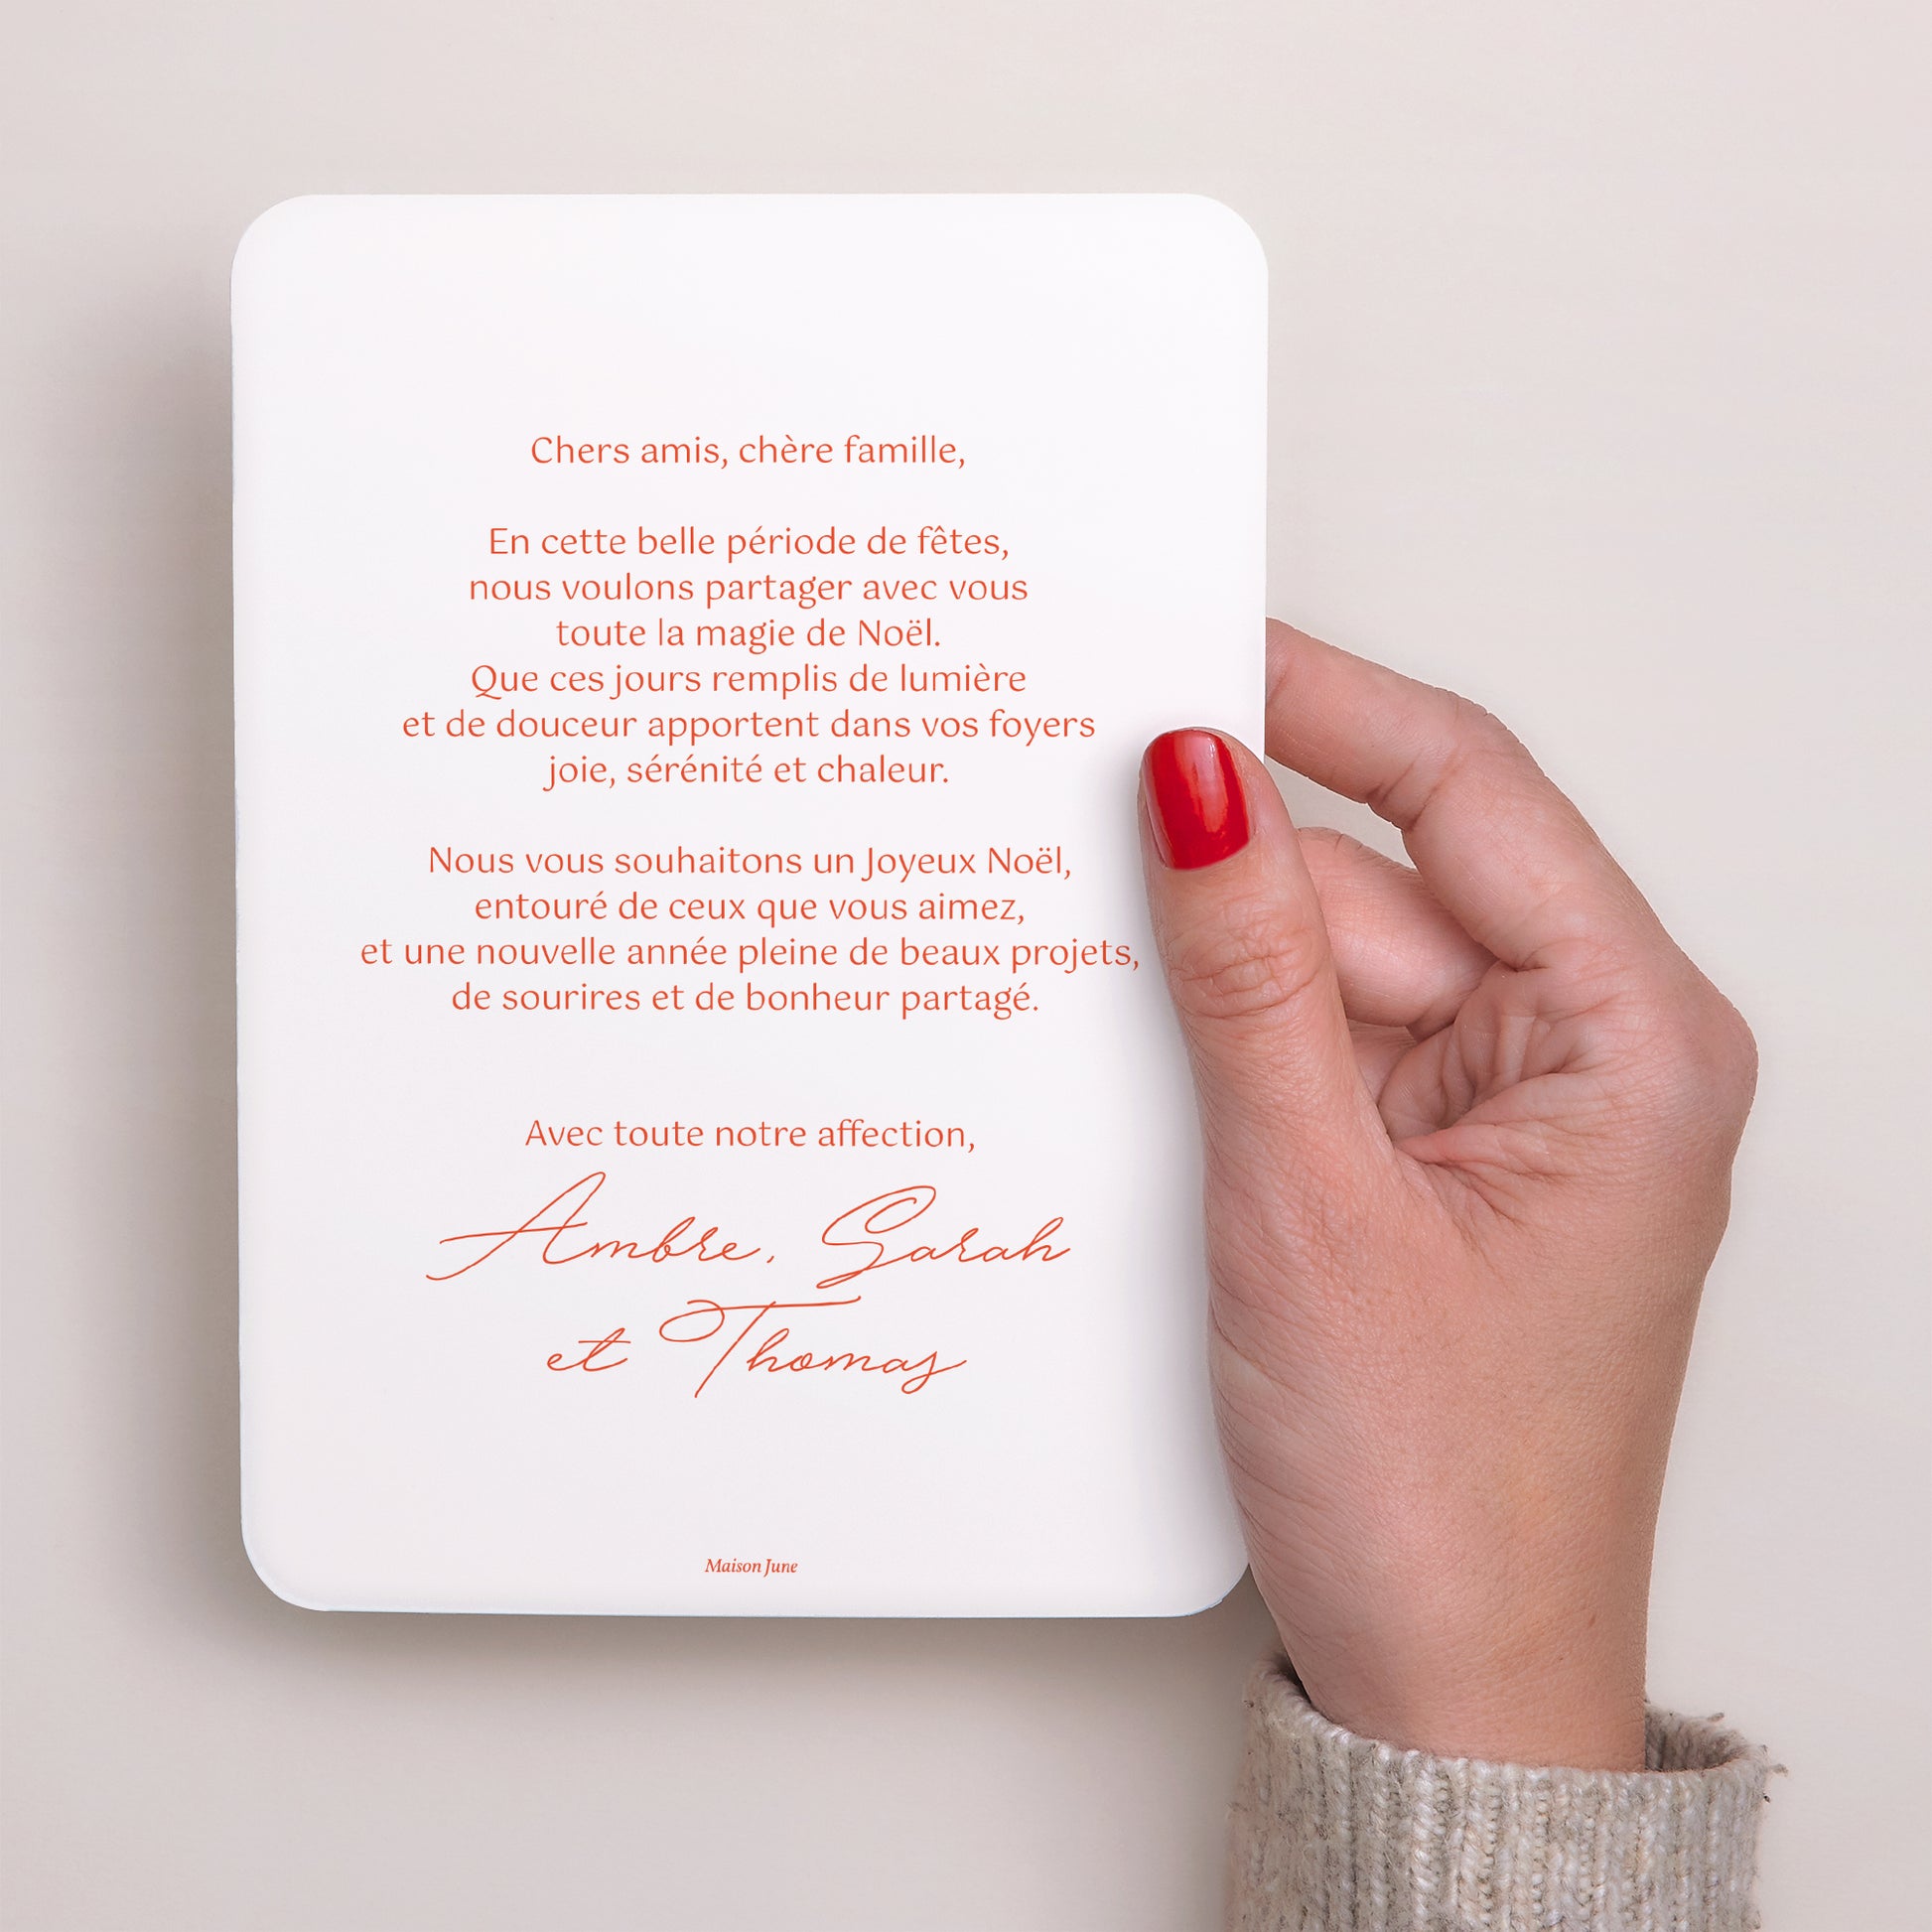 Chers amis, chère famille,
En cette belle période de fêtes,
nous voulons partager avec vous
toute la magie de Noël.
Que ces jours remplis de lumière
et de douceur apportent dans vos foyers
joie, sérénité et chaleur.
Nous vous souhaitons un Joyeux Noël,
entouré de ceux que vous aimez,
et une nouvelle année pleine de beaux projets,
de sourires et de bonheur partagé.
Avec toute notre affection,
Ambre, Sarah
et Thomas
Maison June